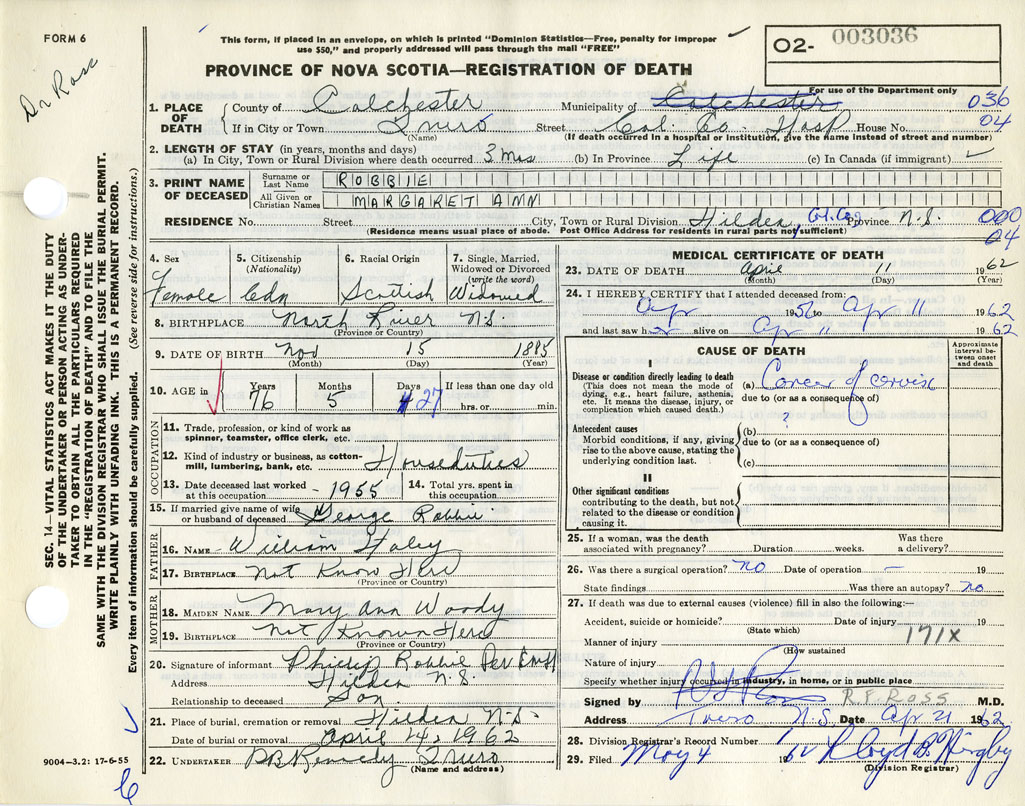 FORM 6
Dr Ross
This form, if placed in an envelope, on which is printed "Dominion Statistics—Free, penalty for improper
use $50," and properly addressed will pass through the mail "FREE"
O2- 003036
For use of the Department only
PROVINCE OF NOVA SCOTIA—REGISTRATION OF DEATH
1. PLACE OF DEATH County of Colchester Municipality of Colchester 036
If in City or Town Truro Street Col. Co. Hosp House No. 04
(Name) (If death occurred a hospital or institution, give the name instead of street and number)
2. LENGTH OF STAY (in years, months and days)
(a) In City, Town or Rural Division where death occurred 3 Mos (b) In Province Life (c) In Canada (if immigrant)
3. PRINT NAME OF DECEASED Surname or Last Name ROBBIE
All Given or Christian Names MARGARET ANN
RESIDENCE No. Street City, Town or Rural Division Hilden, Col. Co. Province N.S. 000
(Residence means usual place of abode. Post Office Address for residents in rural parts not sufficient) 04
4. Sex 5. Citizenship (Nationality) 6. Racial Origin 7. Single, Married, Widowed or Divorced (write the word)
Female Cdn Scottish Widowed
8. BIRTHPLACE North River N.S
(Province or Country)
9. DATE OF BIRTH Nov 15 1885
(Month) (Day) (Year)
10. AGE in Years Months Days If less than one day old
76 5 27 hrs. or min.
OCCUPATION
11. Trade, profession, or kind of work as
spinner, teamster, office clerk, etc.
12. Kind of industry or business, as cotton-
mill, lumbering, bank, etc. Houseduties
13. Date deceased last worked at this occupation - 1955 14. Total yrs. spent in this occupation
15. If married give name of wife
or husband of deceased George Robbie
FATHER
16. NAME William Staley
17. BIRTHPLACE Not Know Here
(Province or Country)
MOTHER
18. MAIDEN NAME Mary Ann Woody
19. BIRTHPLACE Not Known Here
(Province or Country)
20. Signature of informant Phillip Robbie Per
Address Hilden N.S.
Relationship to deceased Son
21. Place of burial, cremation or removal Hilden N-S-
Date of burial or removal April 14, 1962
22. UNDERTAKER Kennedy Truro
(Name and address)
MEDICAL CERTIFICATE OF DEATH
23. DATE OF DEATH April 11 1962
(Month) (Day) (Year)
24. I HEREBY CERTIFY that I attended deceased from:
Apr 1956 to Apr 11 1962
and last saw h alive on Apr 11 1962
CAUSE OF DEATH
Approximate interval between onset and death
I
Disease or condition directly leading to death (a) Cancer of cervix
(This does not mean the mode of due to (or as a consequence of)
dying, e.g., heart failure, asthenia,
etc. It means the disease, injury, or
complication which caused death.)
?
Antecedent causes (b)
Morbid conditions, if any, giving due to (or as a consequence of)
rise to the above cause, stating the
underlying condition last. (c)
II
Other significant conditions
contributing to the death, but not
related to the disease or condition
causing it.
25. If a woman, was the death Was there
associated with pregnancy? Duration weeks. a delivery?
26. Was there a surgical operation? no Date of operation — 19
State findings Was there an autopsy? no
27. If death was due to external causes (violence) fill in also the following:—
Accident, suicide or homicide? Date of injury 19
(State which) 171X
Manner of injury
(How sustained
Nature of injury
Specify whether injury occurred in industry, in home, or in public place
Signed by R.F. ROSS M.D.
Address Truro N.S. Date Apr 21 1962
28. Division Registrar's Record Number
29. Filed May 4 1962
(Division Registrar)
SEC. 14—VITAL STATISTICS ACT MAKES IT THE DUTY
OF THE UNDERTAKER OR PERSON ACTING AS UNDER-
TAKER TO OBTAIN ALL THE PARTICULARS REQUIRED
IN THE "REGISTRATION OF DEATH" AND TO FILE THE
SAME WITH THE DIVISION REGISTRAR WHO SHALL ISSUE THE BURIAL PERMIT.
WRITE PLAINLY WITH UNFADING INK. THIS IS A PERMANENT RECORD.
Every item of information should be carefully supplied. (See reverse side for instructions.)
9004—3.2: 17-6-55